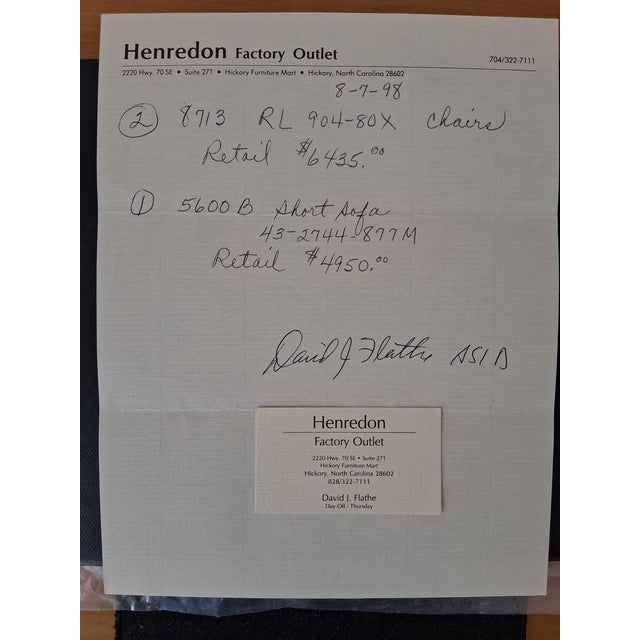 Henredon Factory Outlet
704/322-7111
2220 Hwy. 70 SE • Suite 271 • Hickory Furniture Mart • Hickory, North Carolina 28602
8-7-98
② 8713 RL 904-80X Chairs
Retail $6435.00
① 5600B Short Sofa
43-2744-877M
Retail $4950.00
David J Flathe ASID
Henredon
Factory Outlet
2220 Hwy. 70 SE • Suite 271
Hickory Furniture Mart
Hickory, North Carolina 28602
828/322-7111
David J. Flathe
Day Off / Thursday